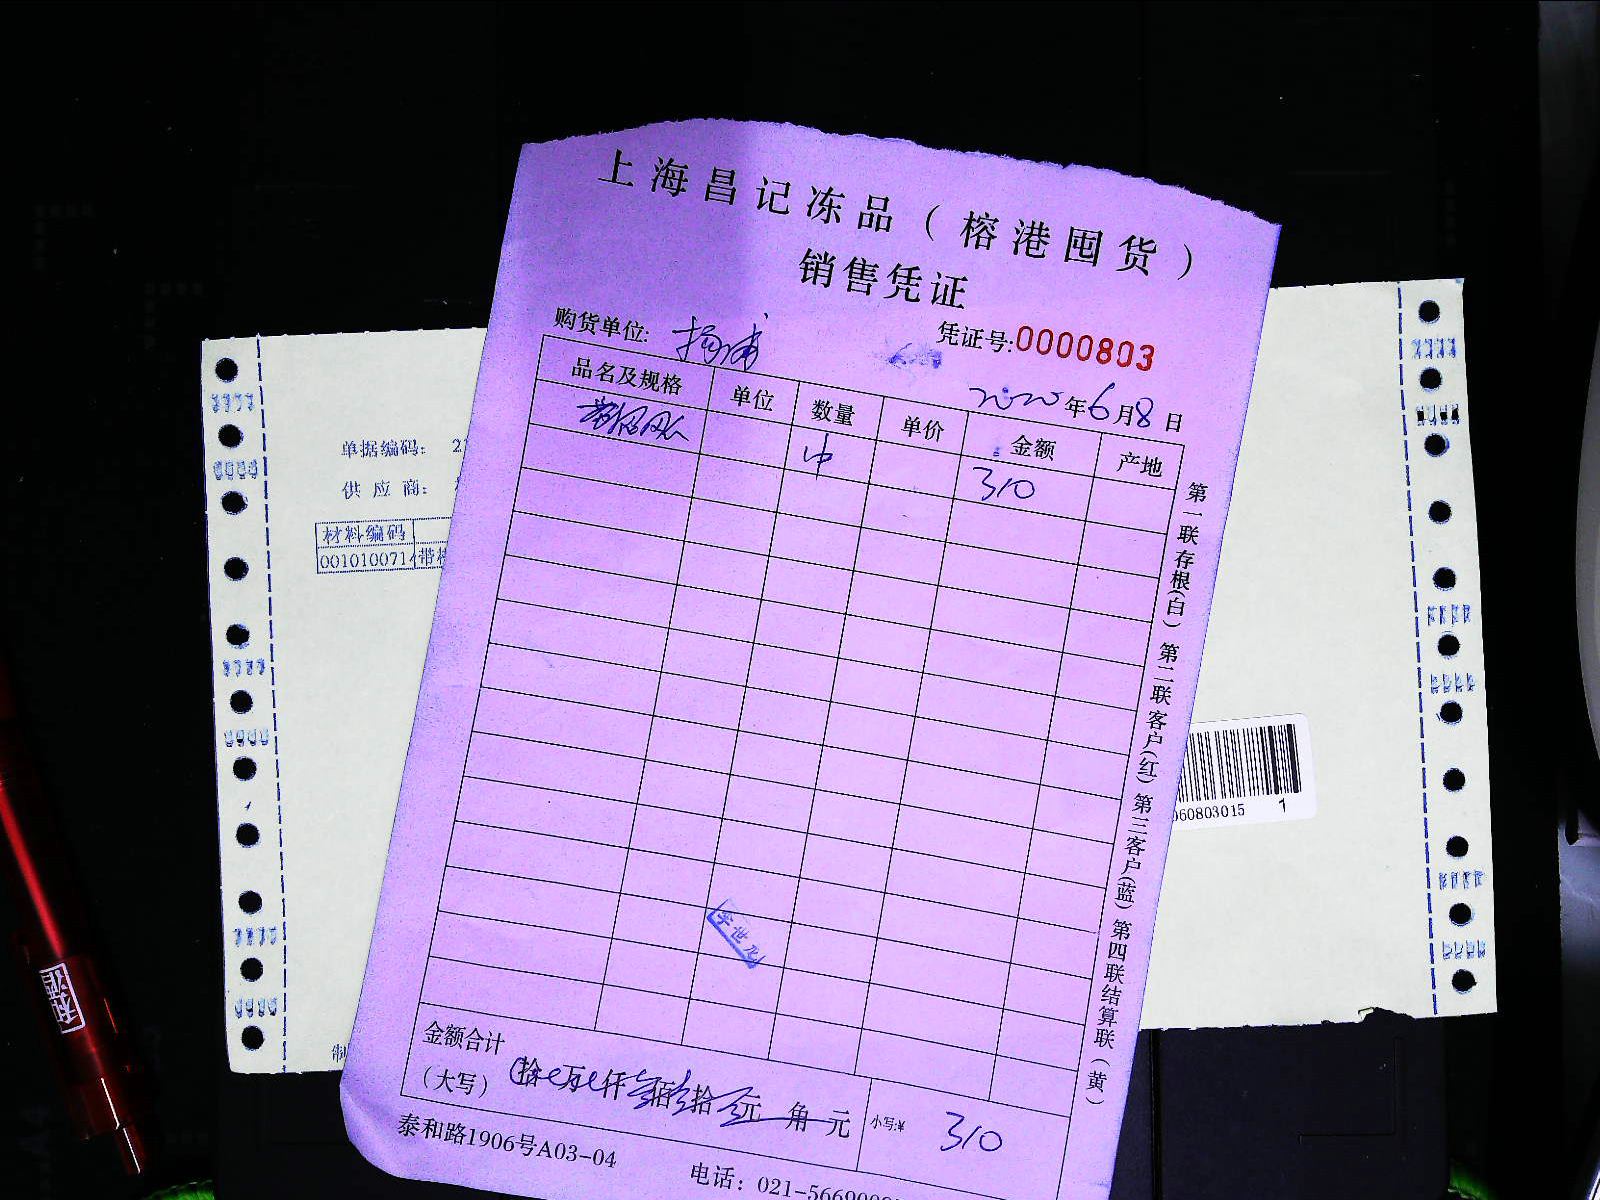 上海昌记冻品（榕港囤货）
销售凭证
购货单位: 杨浦
凭证号:0000803
2020年6月8日
品名及规格 单位 数量 单价 金额 产地
1件 310
第一联存根(白) 第二联客户(红) 第三客户(蓝) 第四联结算联(黄)
李世
金额合计
(大写) 拾 万 仟 叁佰壹拾 元 角 元 小写:¥ 310
泰和路1906号A03-04
电话: 021-5669
单据编码: 21
供应商:
材料编码
001010071 带
制
060803015 1